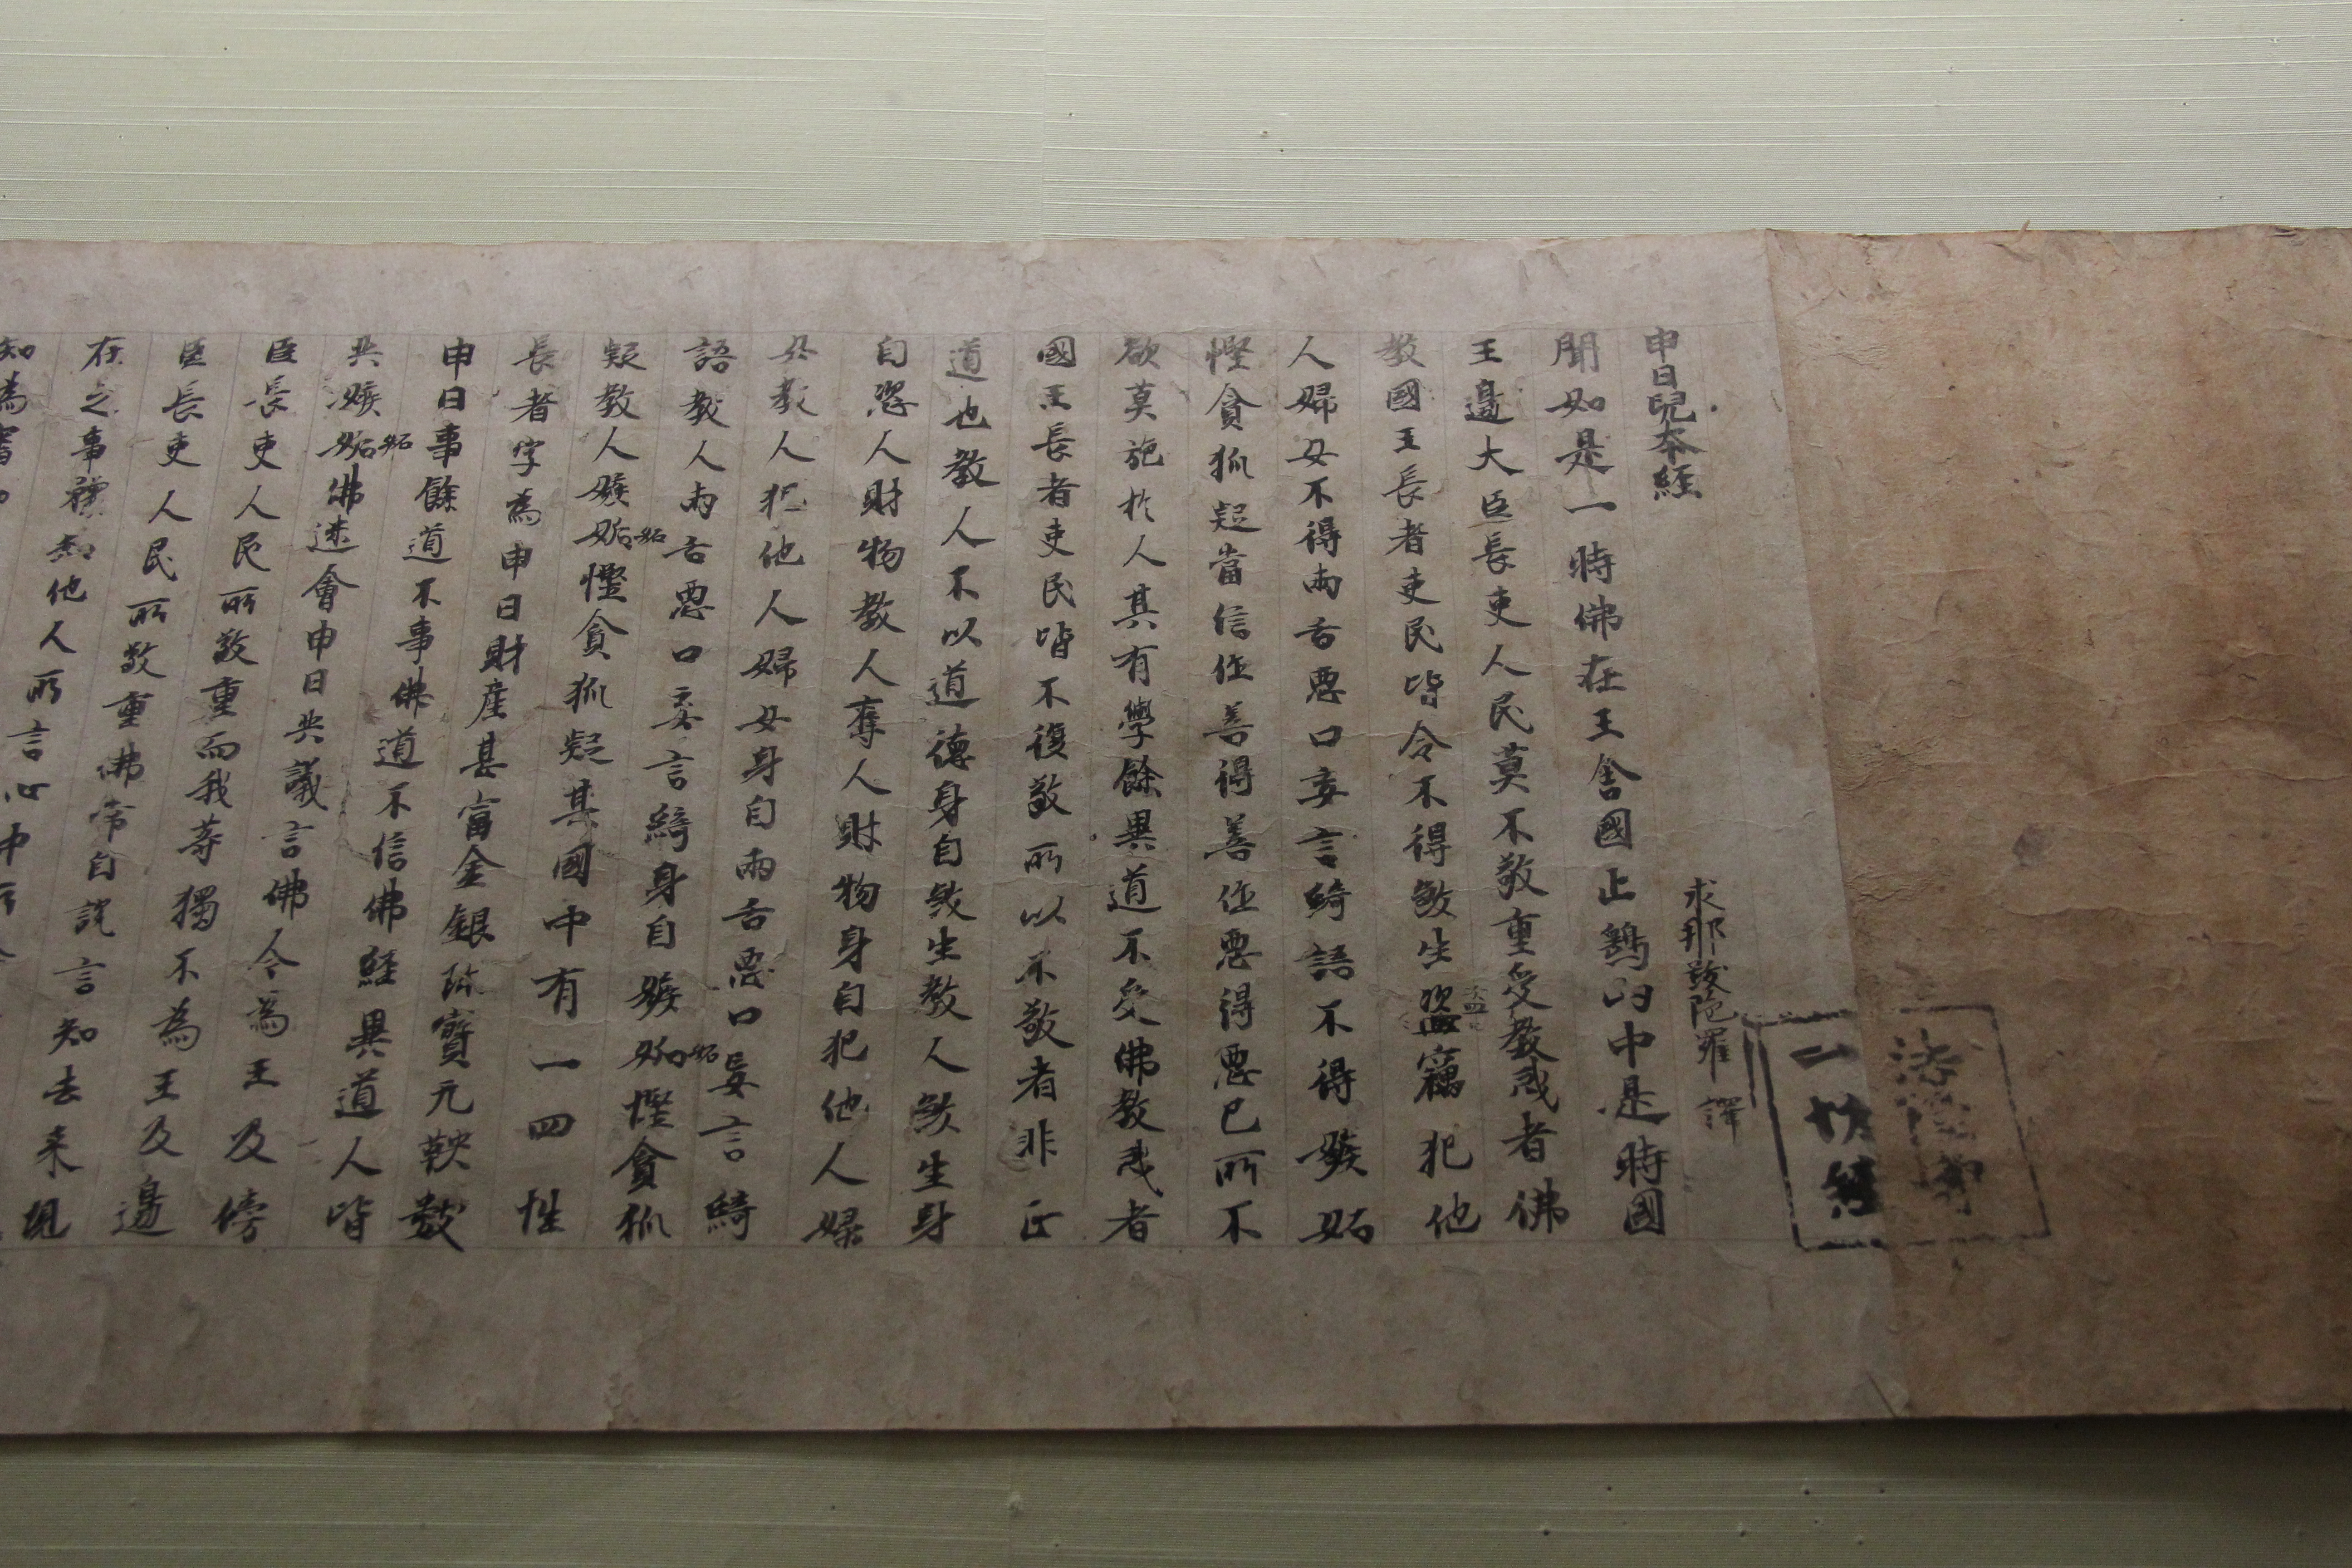 法隆寺
一切經
申日兒本經
求那跋陀羅 譯
聞如是一時佛在王舍國止鷄山中是時國
王邊大臣長吏人民莫不敬重受教戒者佛
教國王長者吏民皆令不得煞生盜竊犯他
盜
人婦女不得兩舌惡口妄言綺語不得嫉妬
慳貪狐疑當信作善得善作惡得惡已所不
欲莫施於人其有學餘異道不受佛教戒者
國王長者吏民皆不復敬所以不敬者非正
道也教人不以道德身自煞生教人煞生身
自恣人財物教人奪人財物身自犯他人婦
女教人犯他人婦女身自兩舌惡口妄言綺
語教人兩舌惡口妄言綺身自嫉妬慳貪狐
妬
疑教人嫉妬慳貪狐疑其國中有一四姓
妬
長者字為申日財產甚富金銀珎寶元鞅數
申日事餘道不事佛道不信佛經異道人皆
共嫉妬佛迷會申日共議言佛今為王及傍
妬
臣長吏人民所敬重而我等獨不為王及邊
臣長吏人民所敬重佛常自說言知去来現
在之事預知他人所言心中
知為